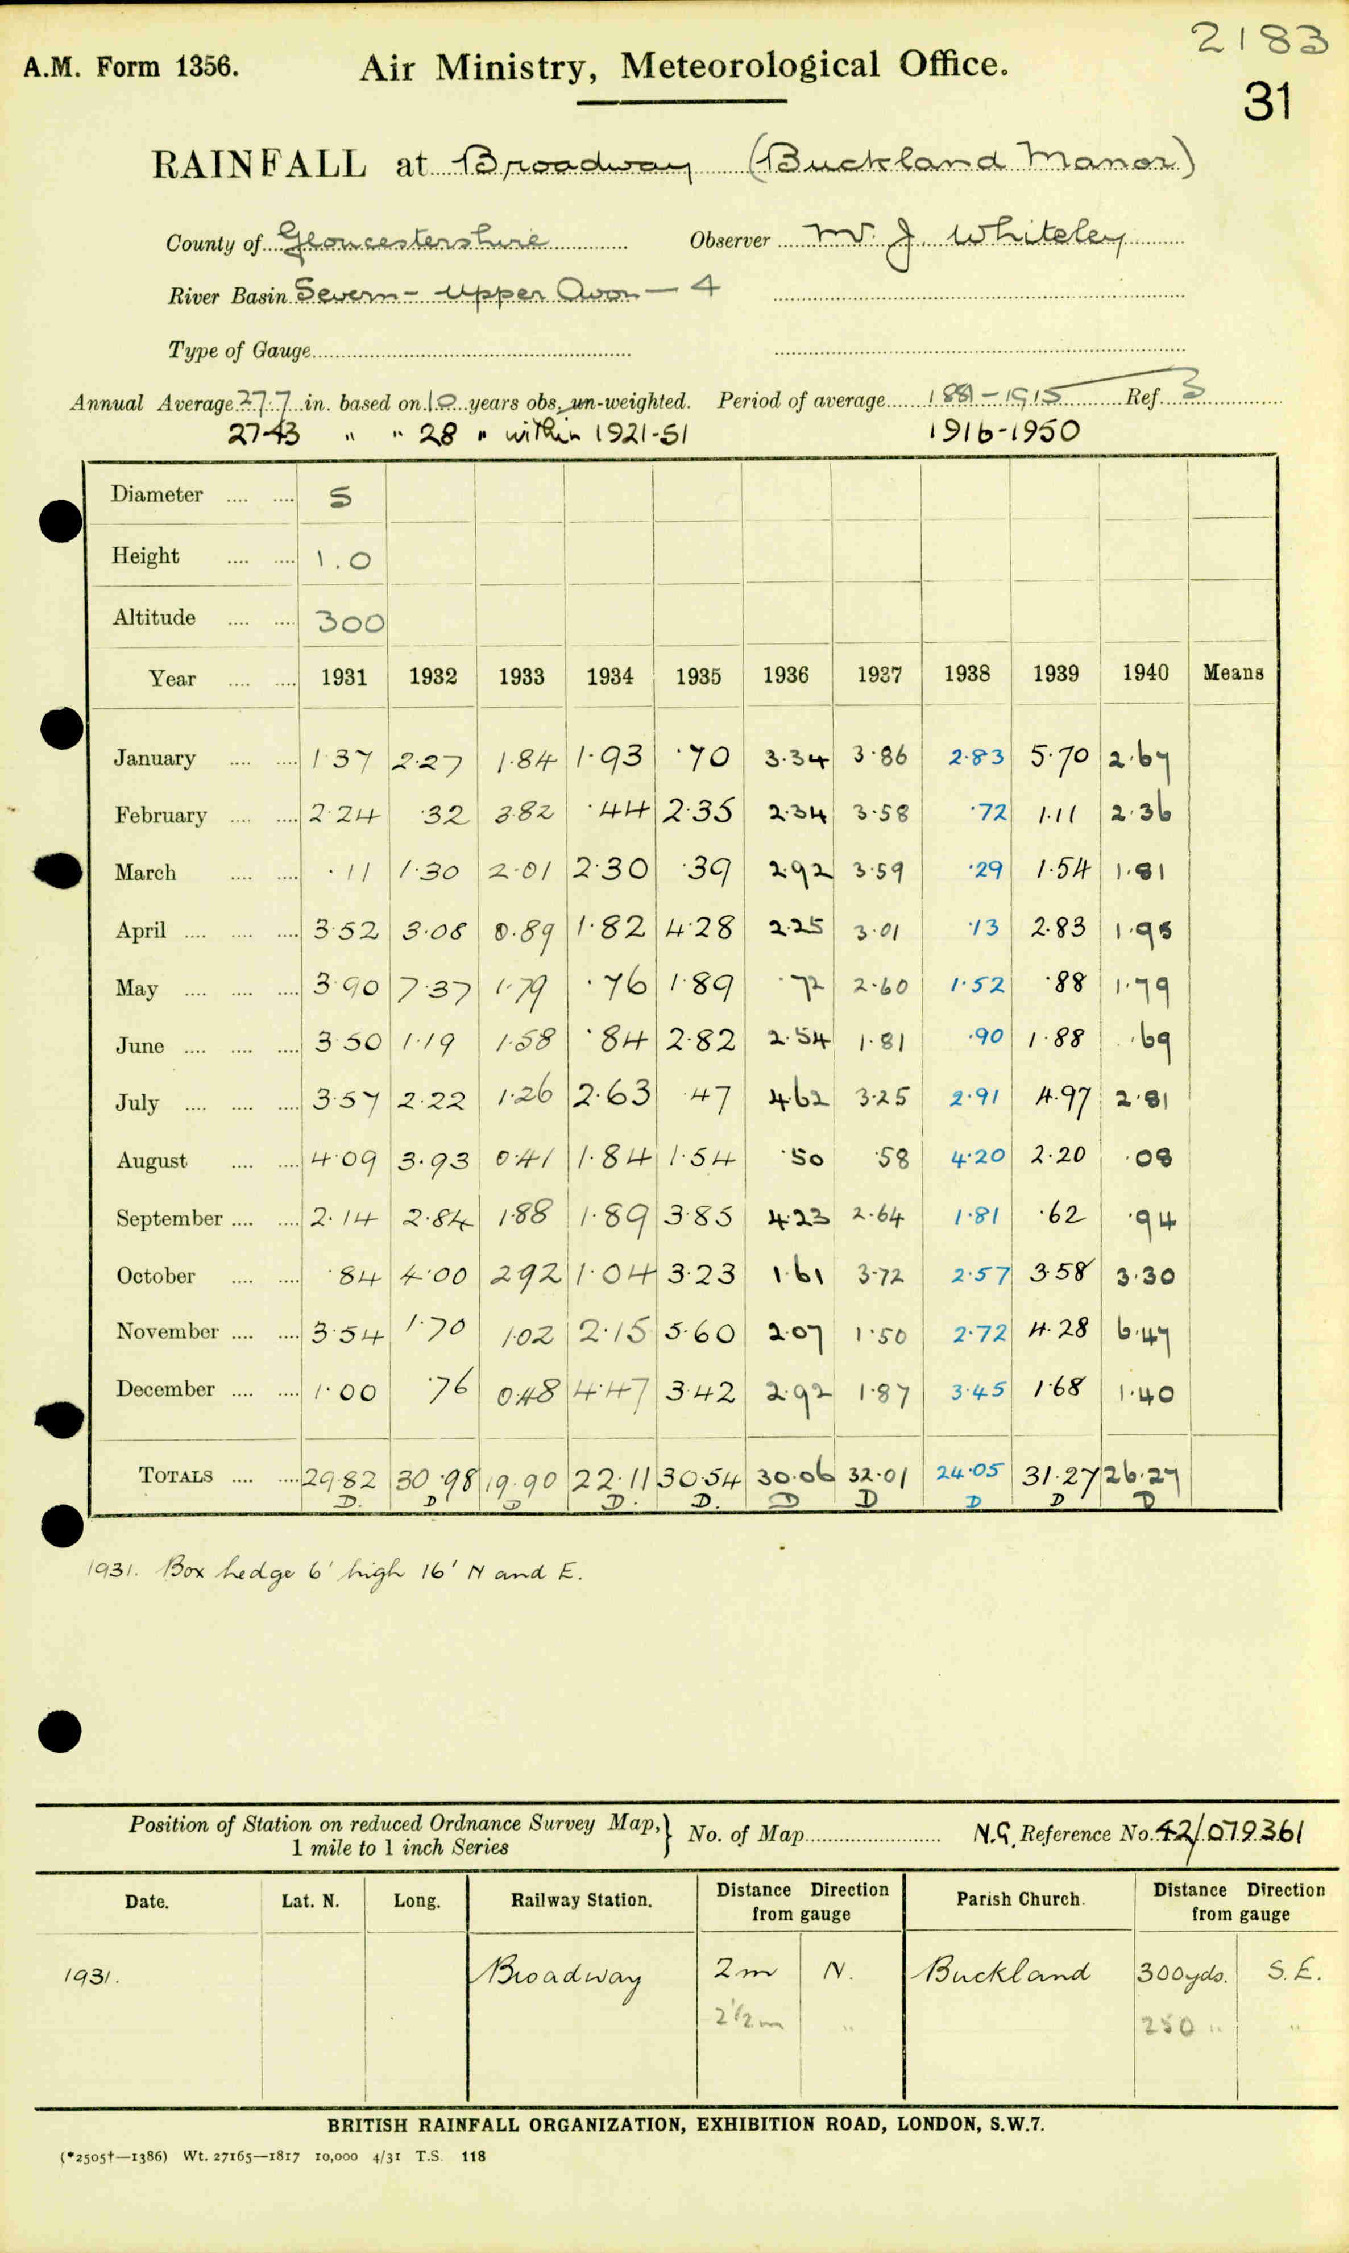 2183
A.M. Form 1356. Air Ministry, Meteorological Office.
31
RAINFALL at Broadway (Buckland Manor)
County of Gloucestershire Observer W. J. Whiteley
River Basin Severn - Upper Avon - 4
Type of Gauge
Annual Average 27.7 in. based on 10 years obs, un-weighted. Period of average 1881-1915 Ref. 3
27.43 " " 28 " within 1921-51 1916-1950
Diameter 5
Height 1.0
Altitude 300
Year 1931 1932 1933 1934 1935 1936 1937 1938 1939 1940 Means
January 1.37 2.27 1.84 1.93 .70 3.34 3.86 2.83 5.70 2.67
February 2.24 .32 3.82 .44 2.35 2.34 3.58 .72 1.11 2.36
March .11 1.30 2.01 2.30 .39 2.92 3.59 .29 1.54 1.81
April 3.52 3.08 0.89 1.82 4.28 2.25 3.01 .13 2.83 1.95
May 3.90 7.37 1.79 .76 1.89 .72 2.60 1.52 .88 1.79
June 3.50 1.19 1.58 .84 2.82 2.54 1.81 .90 1.88 .69
July 3.57 2.22 1.26 2.63 .47 4.62 3.25 2.91 4.97 2.81
August 4.09 3.93 0.41 1.84 1.54 .50 .58 4.20 2.20 .08
September 2.14 2.84 1.88 1.89 3.85 4.23 2.64 1.81 .62 .94
October .84 4.00 2.92 1.04 3.23 1.61 3.72 2.57 3.58 3.30
November 3.54 1.70 1.02 2.15 5.60 2.07 1.50 2.72 4.28 6.47
December 1.00 .76 0.48 4.47 3.42 2.92 1.87 3.45 1.68 1.40
TOTALS 29.82 30.98 19.90 22.11 30.54 30.06 32.01 24.05 31.27 26.27
D. D D D. D. D D D D D
1931. Box hedge 6' high 16' N and E.
Position of Station on reduced Ordnance Survey Map, 1 mile to 1 inch Series No. of Map N.G. Reference No. 42/079361
Date. Lat. N. Long. Railway Station. Distance Direction from gauge Parish Church. Distance Direction from gauge
1931. Broadway 2m N. Buckland 300yds. S.E.
2 1/2 m " 250 " "
BRITISH RAINFALL ORGANIZATION, EXHIBITION ROAD, LONDON, S.W.7.
(*2505†—1386) Wt. 27165—1817 10,000 4/31 T.S. 118